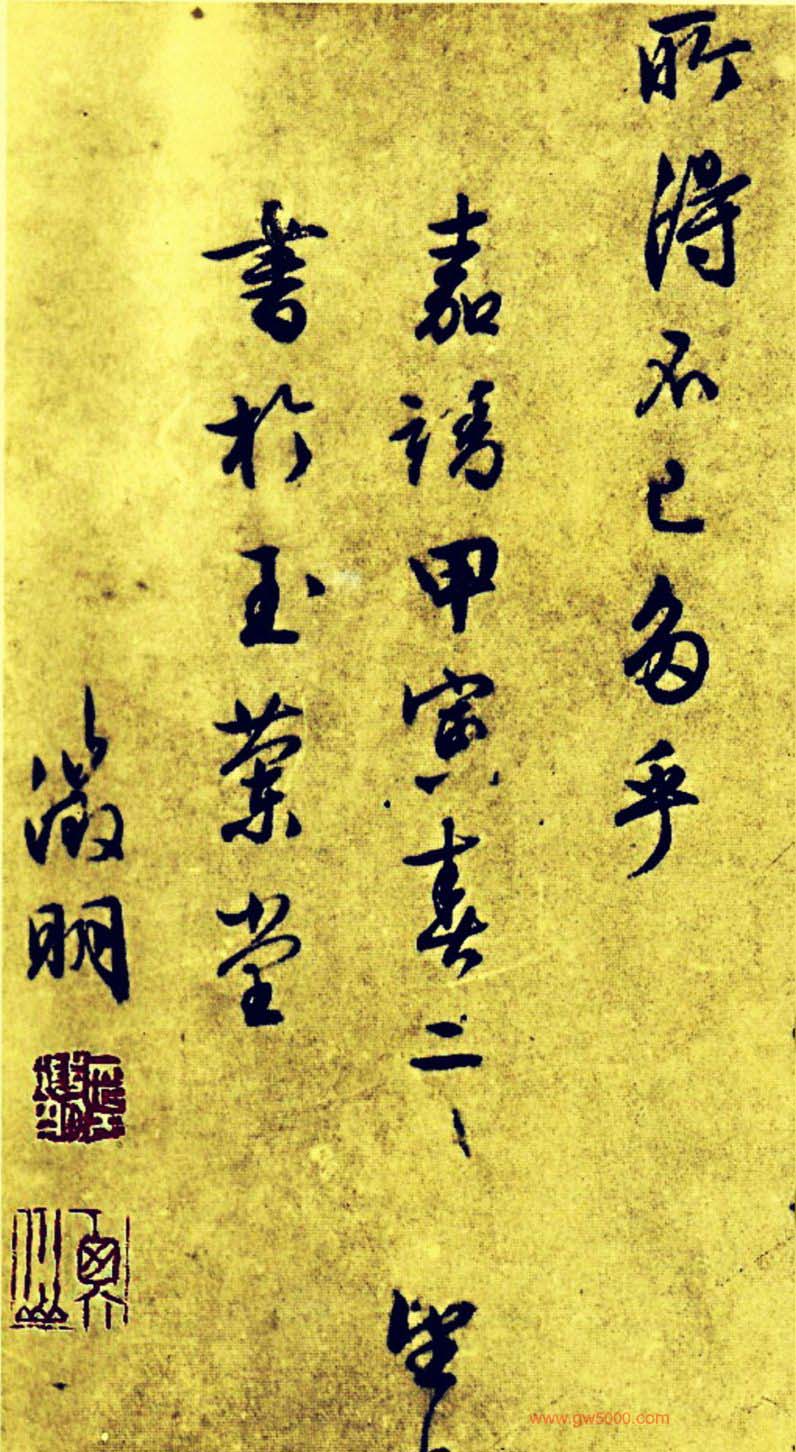 所得不已多乎
嘉靖甲寅春二望
書於玉蘭堂
徵明
www.gw5000.com